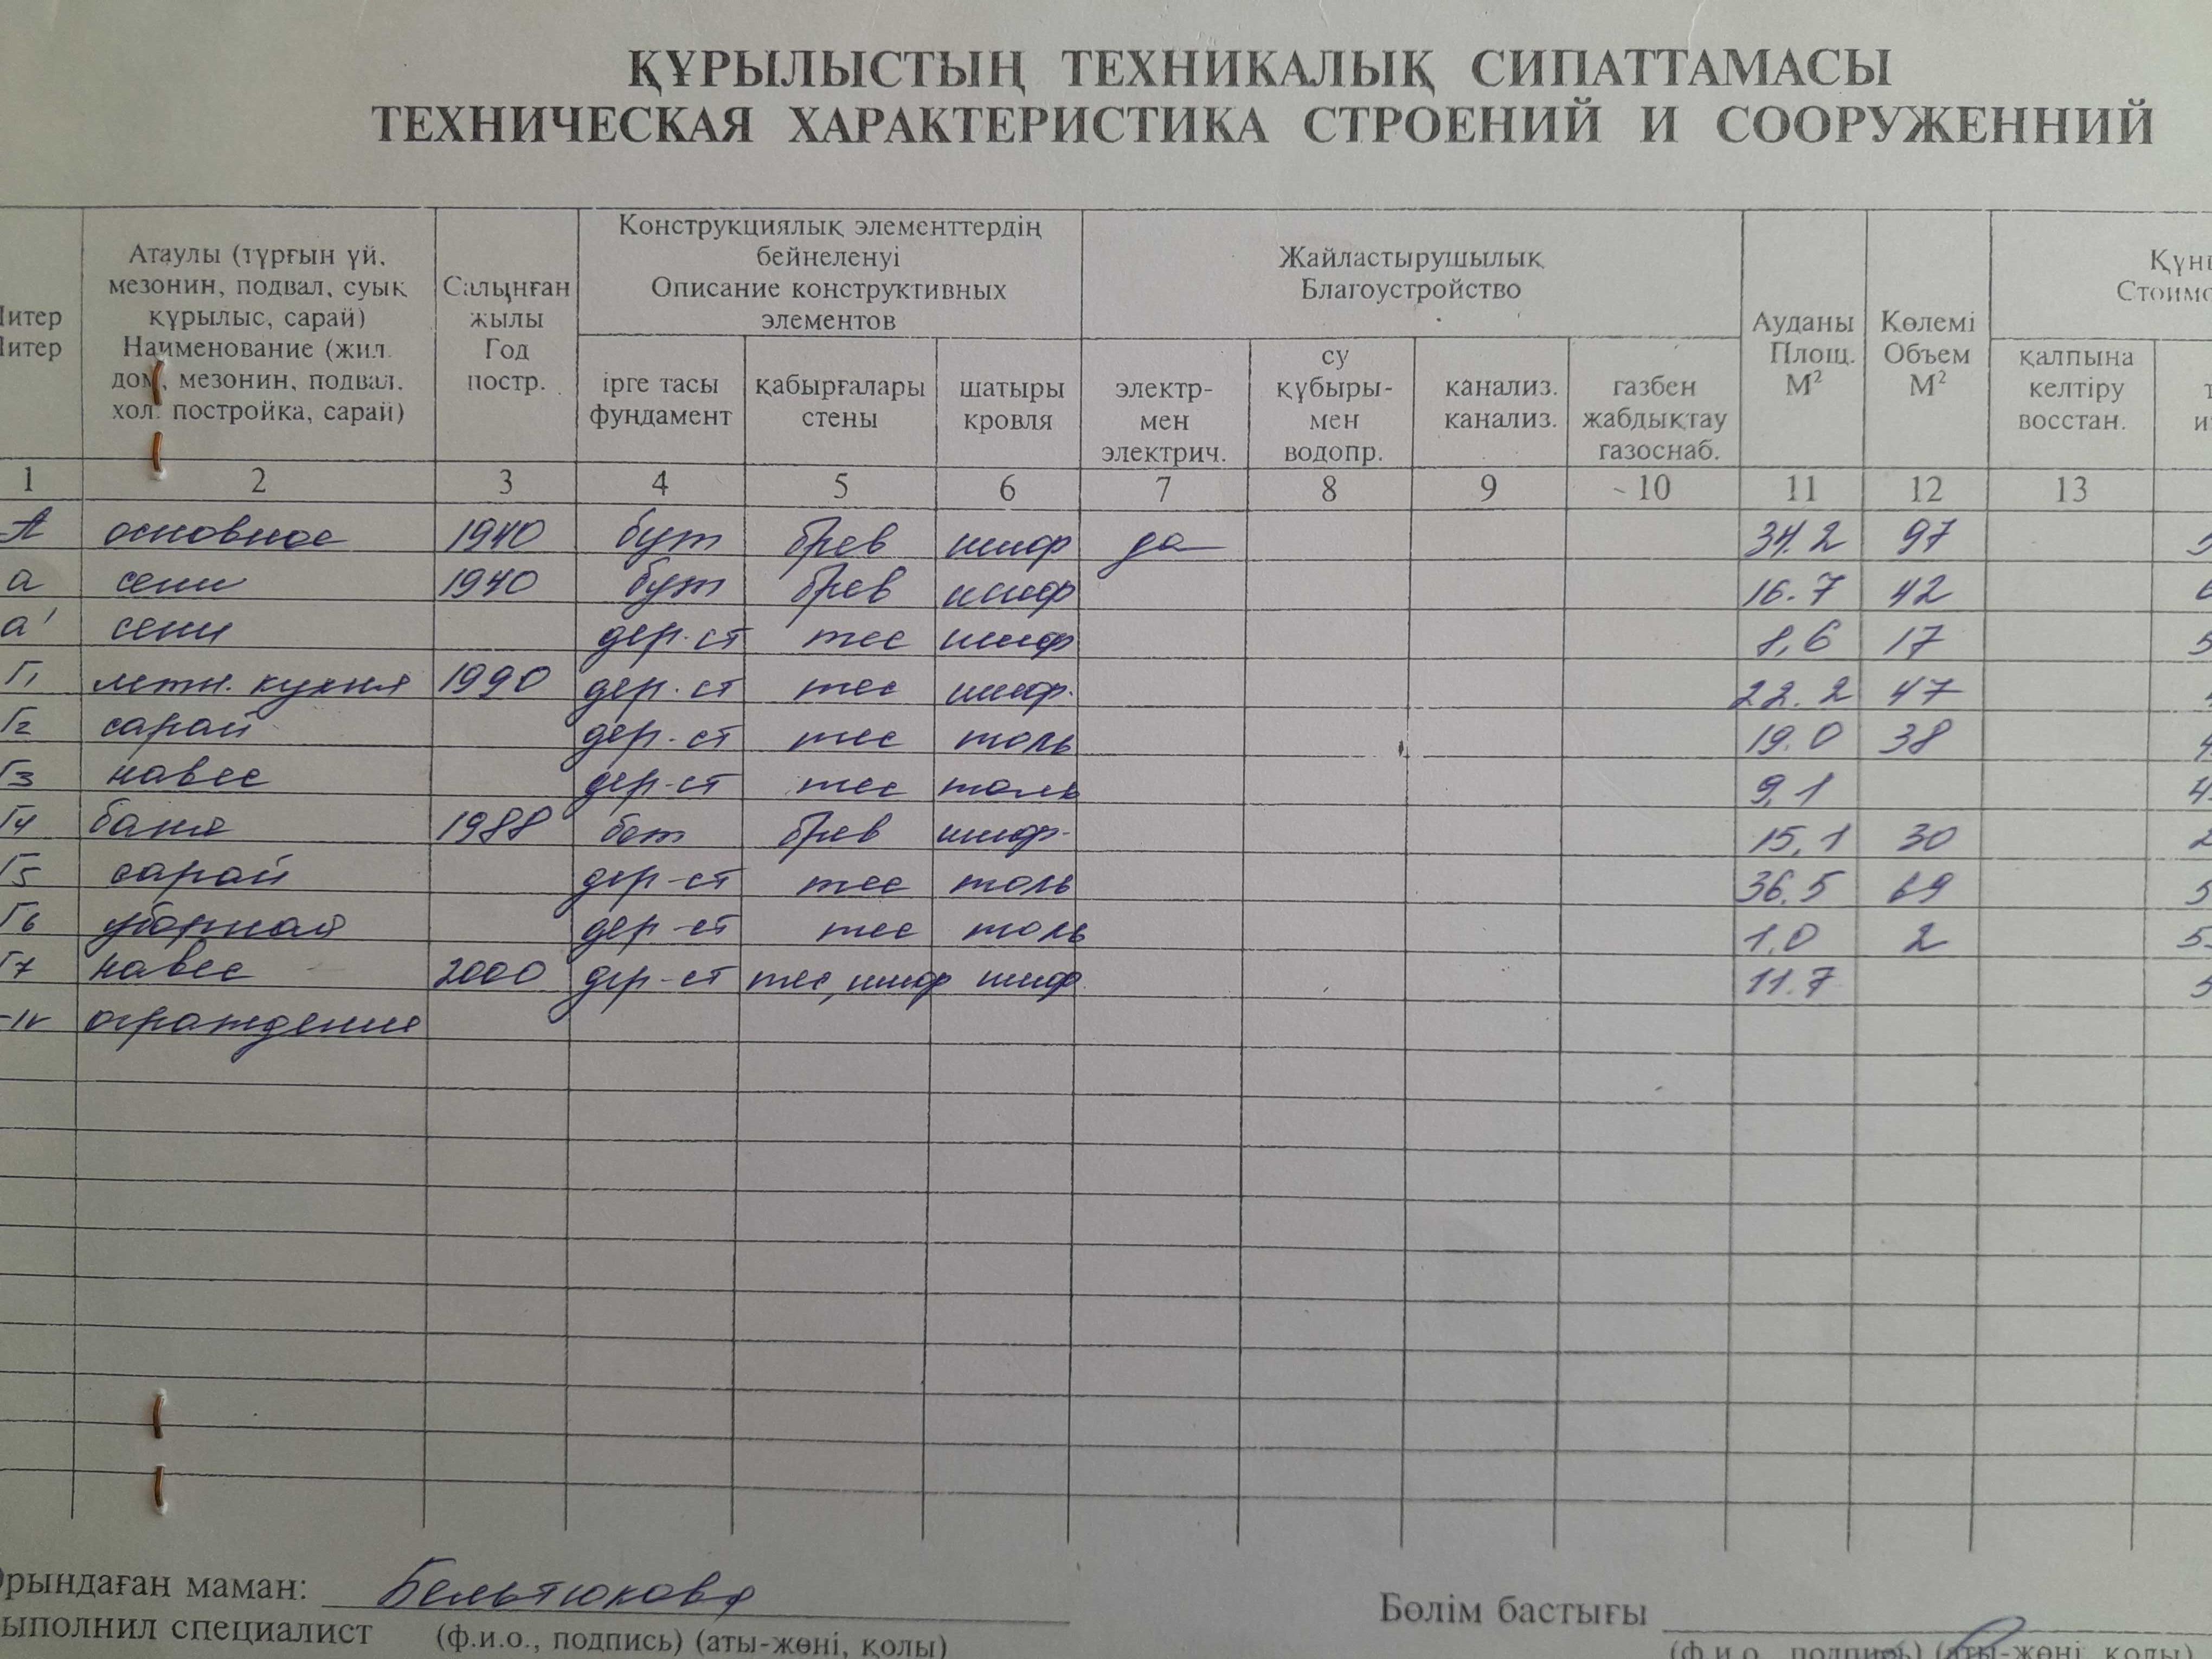 ҚҰРЫЛЫСТЫҢ ТЕХНИКАЛЫҚ СИПАТТАМАСЫ
ТЕХНИЧЕСКАЯ ХАРАКТЕРИСТИКА СТРОЕНИЙ И СООРУЖЕННИЙ
Литер
Литер
Атаулы (тұрғын үй, мезонин, подвал, суық құрылыс, сарай)
Наименование (жил. дом, мезонин, подвал. хол. постройка, сарай)
Салынған жылы
Год постр.
Конструкциялық элементтердің бейнеленуі
Описание конструктивных элементов
ірге тасы фундамент
қабырғалары стены
шатыры кровля
Жайластырушылық
Благоустройство
электр-мен электрич.
су құбыры-мен водопр.
канализ. канализ.
газбен жабдықтау газоснаб.
Ауданы Площ. М²
Көлемі Объем М²
қалпына келтіру восстан.
1 2 3 4 5 6 7 8 9 10 11 12 13
А основное 1940 бут брев шиф да 34.2 97
а сени 1940 бут брев шиф 16.7 42
а' сени дер.ст тес шиф 8,6 17
Г1 летн. кухня 1990 дер.ст тес шиф. 22.2 47
Г2 сарай дер.ст тес толь 19.0 38
Г3 навес дер-ст тес толь 9,1
Г4 баня 1988 бет брев шиф. 15,1 30
Г5 сарай дер-ст тес толь 36.5 69
Г6 уборная дер-ст тес толь 1.0 2
Г7 навес 2000 дер-ст тес, шиф шиф 11.7
-IV ограждение
Орындаған маман: Бельтюкова
Выполнил специалист (ф.и.о., подпись) (аты-жөні, қолы)
Бөлім бастығы
(ф.и.о., подпись) (аты-жөні, қолы)